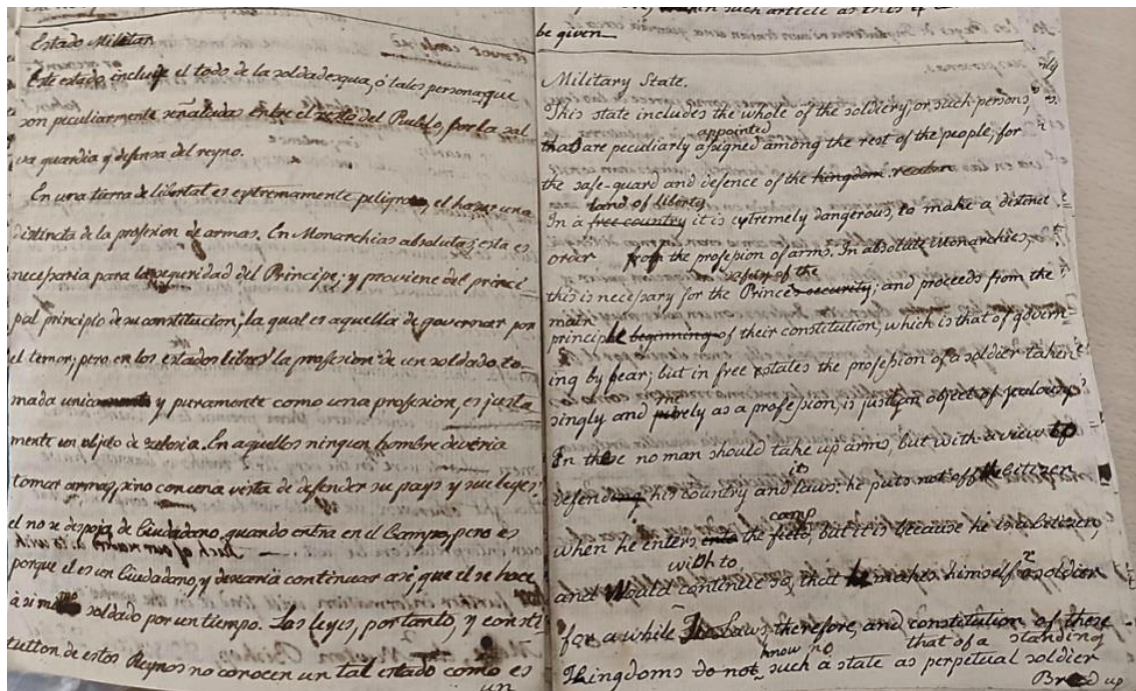 Estado Militar.
Este estado incluije el todo de la soldadesqua, ó tales personas que
son peculiarmente señaladas entre el resto del Pueblo, por la sal
va guardia y defensa del reyno.
En una tierra de libertad es extremamente peligroso, el hazer una
distincta de la profesion de armas. En Monarchias absolutas, esta es
necessaria para la seguridad del Principe; y proviene del princi
pal principio de su constitucion, la qual es aquella de governar por
el temor; pero en los estados libres la profession de un soldado to-
mada unicamente y puramente como una profesion, es justa
mente un objeto de zelosia. En aquellos ningun hombre deveria
tomar armas, sino con una vista de defender su pays y sus leyes:
el no se despoja de Ciudadano quando entra en el Campo, pero es
porque el es un Ciudadano, y desearia continuar asi, que el se hace
à si mismo soldado por un tiempo. Las leyes, por tanto, y consti
tution de estos Reynos no conocen un tal estado como es
un
such article as this
be given
Military State.
This state includes the whole of the soldiery, or such persons,
appointed
that are peculiarly assigned among the rest of the people, for
the safe-guard and defence of the kingdom. realm
land of liberty
In a free country it is extremely dangerous, to make a distinct
order from the profession of arms. In absolute Monarchies,
safety of the
this is necessary for the Prince's security; and proceeds from the
main
principle beginning of their constitution, which is that of govern-
ing by fear; but in free states the profession of a soldier taken
singly and purely as a profession, is justly an object of jealousy.
In these no man should take up arms, but with a view to
its
defend his country and laws: he puts not off the citizen
camp
when he enters into the field, but it is because he is a citizen,
wish to
and would continue so, that he makes himself a soldier
for a while The laws, therefore, and constitution of these
know no that of a standing
Kingdoms do not such a state as perpetual soldier
Bred up